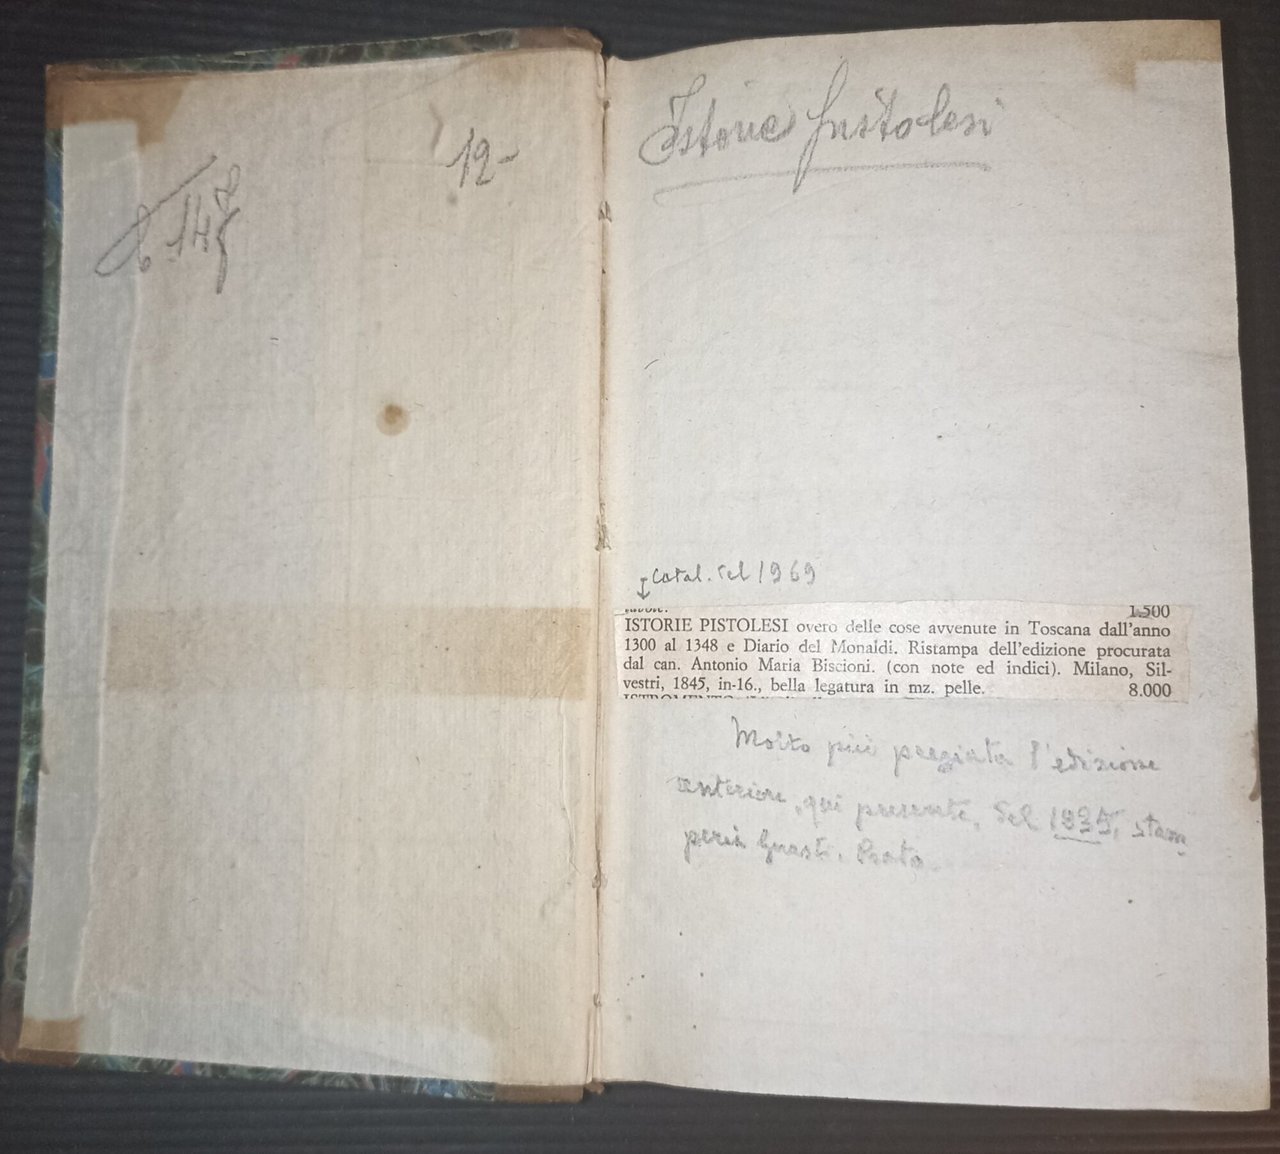 12-
Istorie Pistolesi
Catal. del 1969
1.500
ISTORIE PISTOLESI overo delle cose avvenute in Toscana dall'anno
1300 al 1348 e Diario del Monaldi. Ristampa dell'edizione procurata
dal can. Antonio Maria Biscioni. (con note ed indici). Milano, Sil-
vestri, 1845, in-16., bella legatura in mz. pelle. 8.000
Molto più pregiata l'edizione
anteriore, qui presente, del 1835, stam
peria Guasti. Prato.